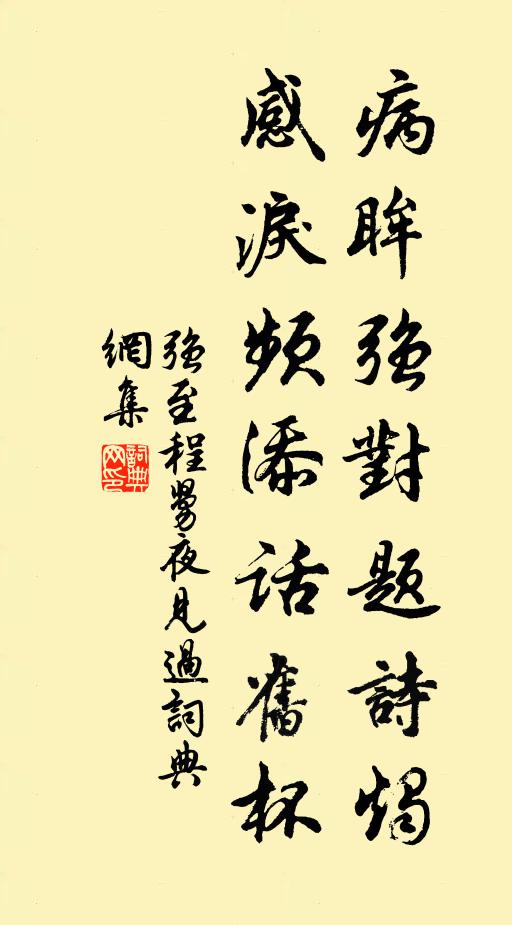 病眸強對題詩燭
感淚頻添話舊杯
強至程嶨夜見過詞典
網集
詞典網印